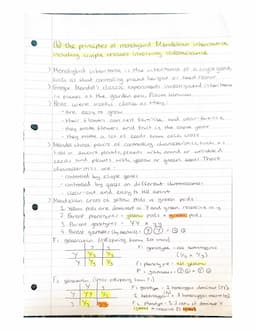 (b) the principles of monohybrid Mendelian inheritance
including simple crosses involving codominance
> Monohybrid inheritance is the inheritance of a single gene,
such as that controlling plant height or seed colour.
> Gregor Mendel's classic experiments investigated inheritance
in plants of the garden pea, Pisum sativum
> Peas were useful choice as they:
- are easy to grow
- their flowers can self fertilise and cross-fertilise
- they make flowers and fruit in the same year
- they make a lot of seeds from each cross
> Mendel chose pairs of contrasting characteristics, such as
tall or dwarf plants, plants with round or wrinkled
seeds and plants with yellow or green seeds. These
characteristics are
- controlled by single genes
- controlled by genes on different chromosomes
- clear-cut and easy to tell apart
> Mendelian cross of yellow pods x green pods:
1. Yellow pods are dominant = Y and green recessive = y
2. Parent phenotypes = green pods x
3. Parent genotypes = YY x yy
4. Parent gametes (by meiosis) =
F₁ generation (offspring from 1st cross)
Y Yy Yy
Y Yy Yy
F₁ genotype:
(Yy x Yy)
F₁ phenotype: all yellow
F₁ gametes:
F₂ generation
Y y
Y YY Yy
y Yy yy